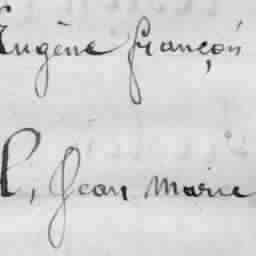 Eugène françois
P, Jean Marie